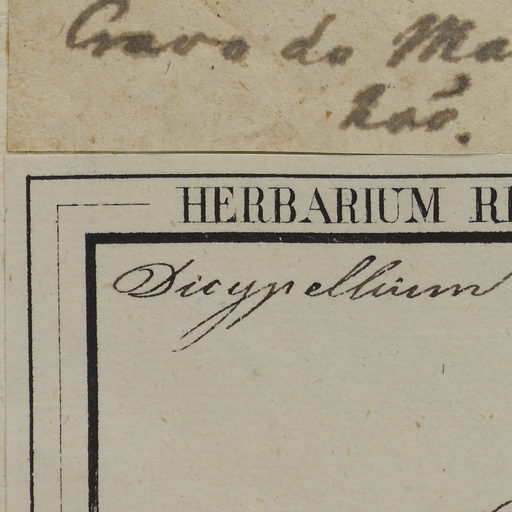 Cravo do Ma
HERBARIUM
Dicypellium